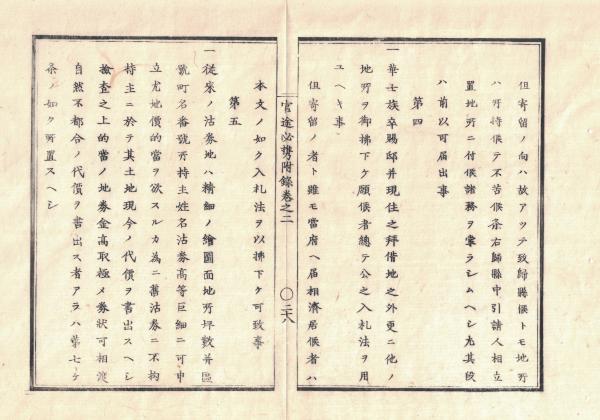 但寄留ノ向ハ故アツテ致歸縣候トモ地所
ハ所持候テ不苦候条右歸縣中引請人相立
置地所ニ付候諸務ヲ蒙ラシムヘシ尤其段
ハ前以可届出事
第四
一華士族卒賜邸并現住之拜借地之外更ニ他ノ
地所ヲ御拂下ケ願候者總テ公之入札法ヲ用
ユヘキ事
但寄留ノ者ト雖モ當府ヘ届相濟居候者ハ
官途必携附錄卷之二
〇三十八
本文ノ如ク入札法ヲ以拂下ケ可致事
第五
一從來ノ沽券地ハ精細ノ繪圖面地所坪數并區
號町名番號所持主姓名沽券高等巨細ニ可申
立尤地價的當ヲ欲スルカ為ニ舊沽券ニ不拘
持主ニ於テ其土地現今ノ代價ヲ書出スヘシ
檢査之上的當ノ地券金高取極メ券狀可相渡
自然不都合ノ代價ヲ書出ス者アラハ第七ケ
条ノ如ク所置スヘシ